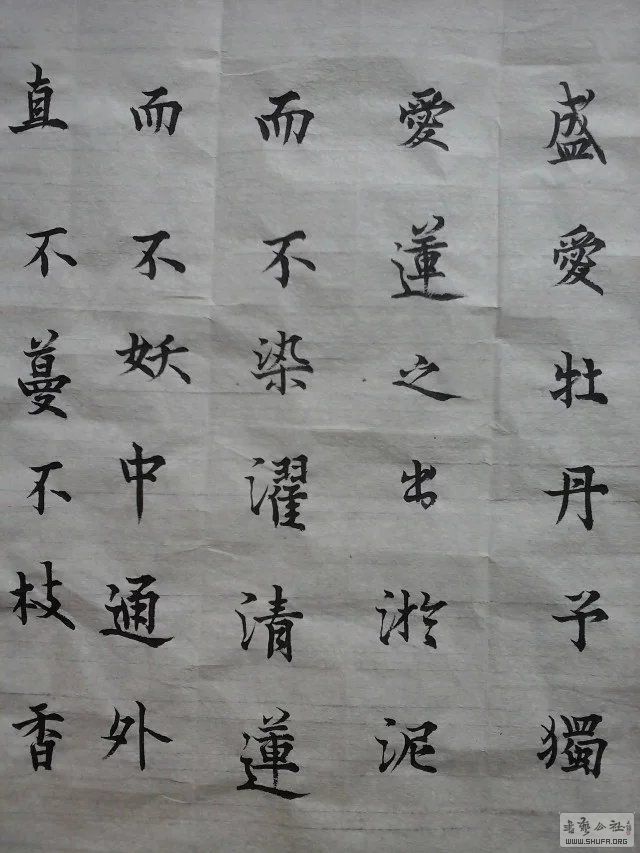 盛愛牡丹予獨
愛蓮之出淤泥
而不染濯清蓮
而不妖中通外
直不蔓不枝香
WWW.SHUFA.ORG